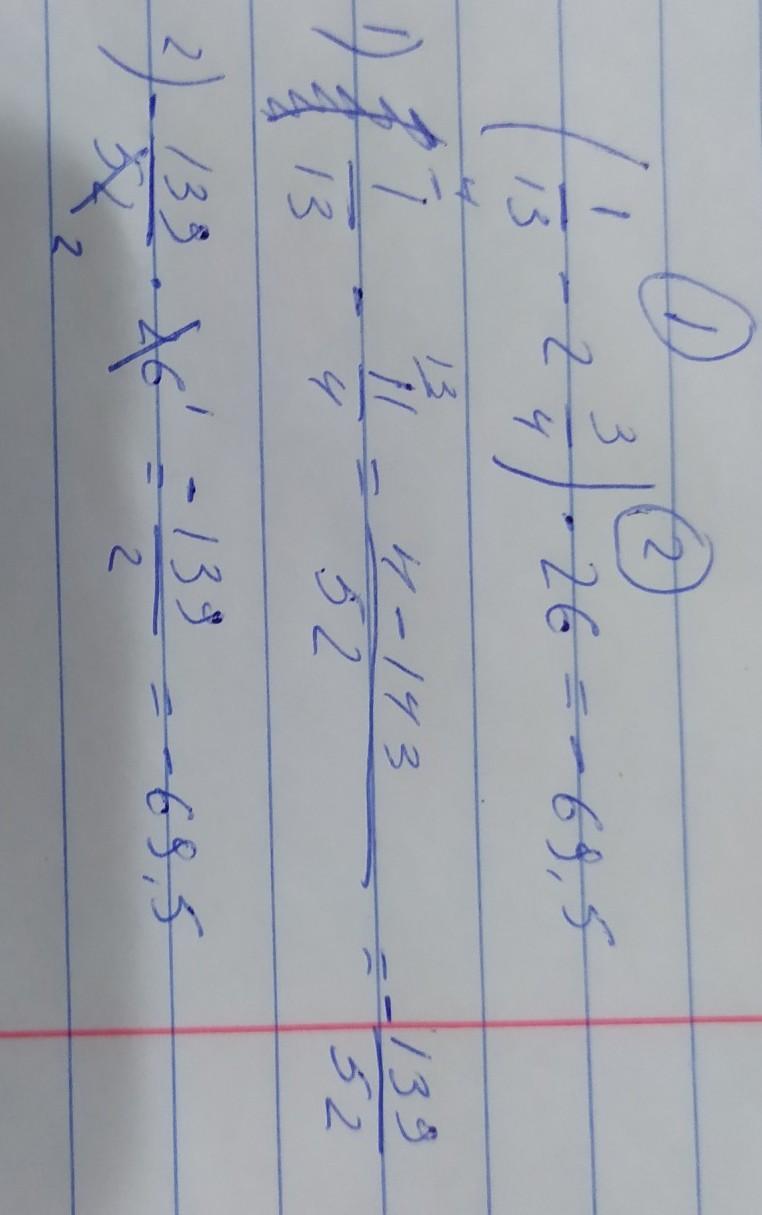 ① ②
(1/13 - 2 3/4) · 26 = - 69,5
1) 1/13 ⁻⁴ - 11/4 ¹³ = 4 - 143/52 = - 139/52
2) - 139/52 ₂ · 26 ¹ = - 139/2 = - 69,5